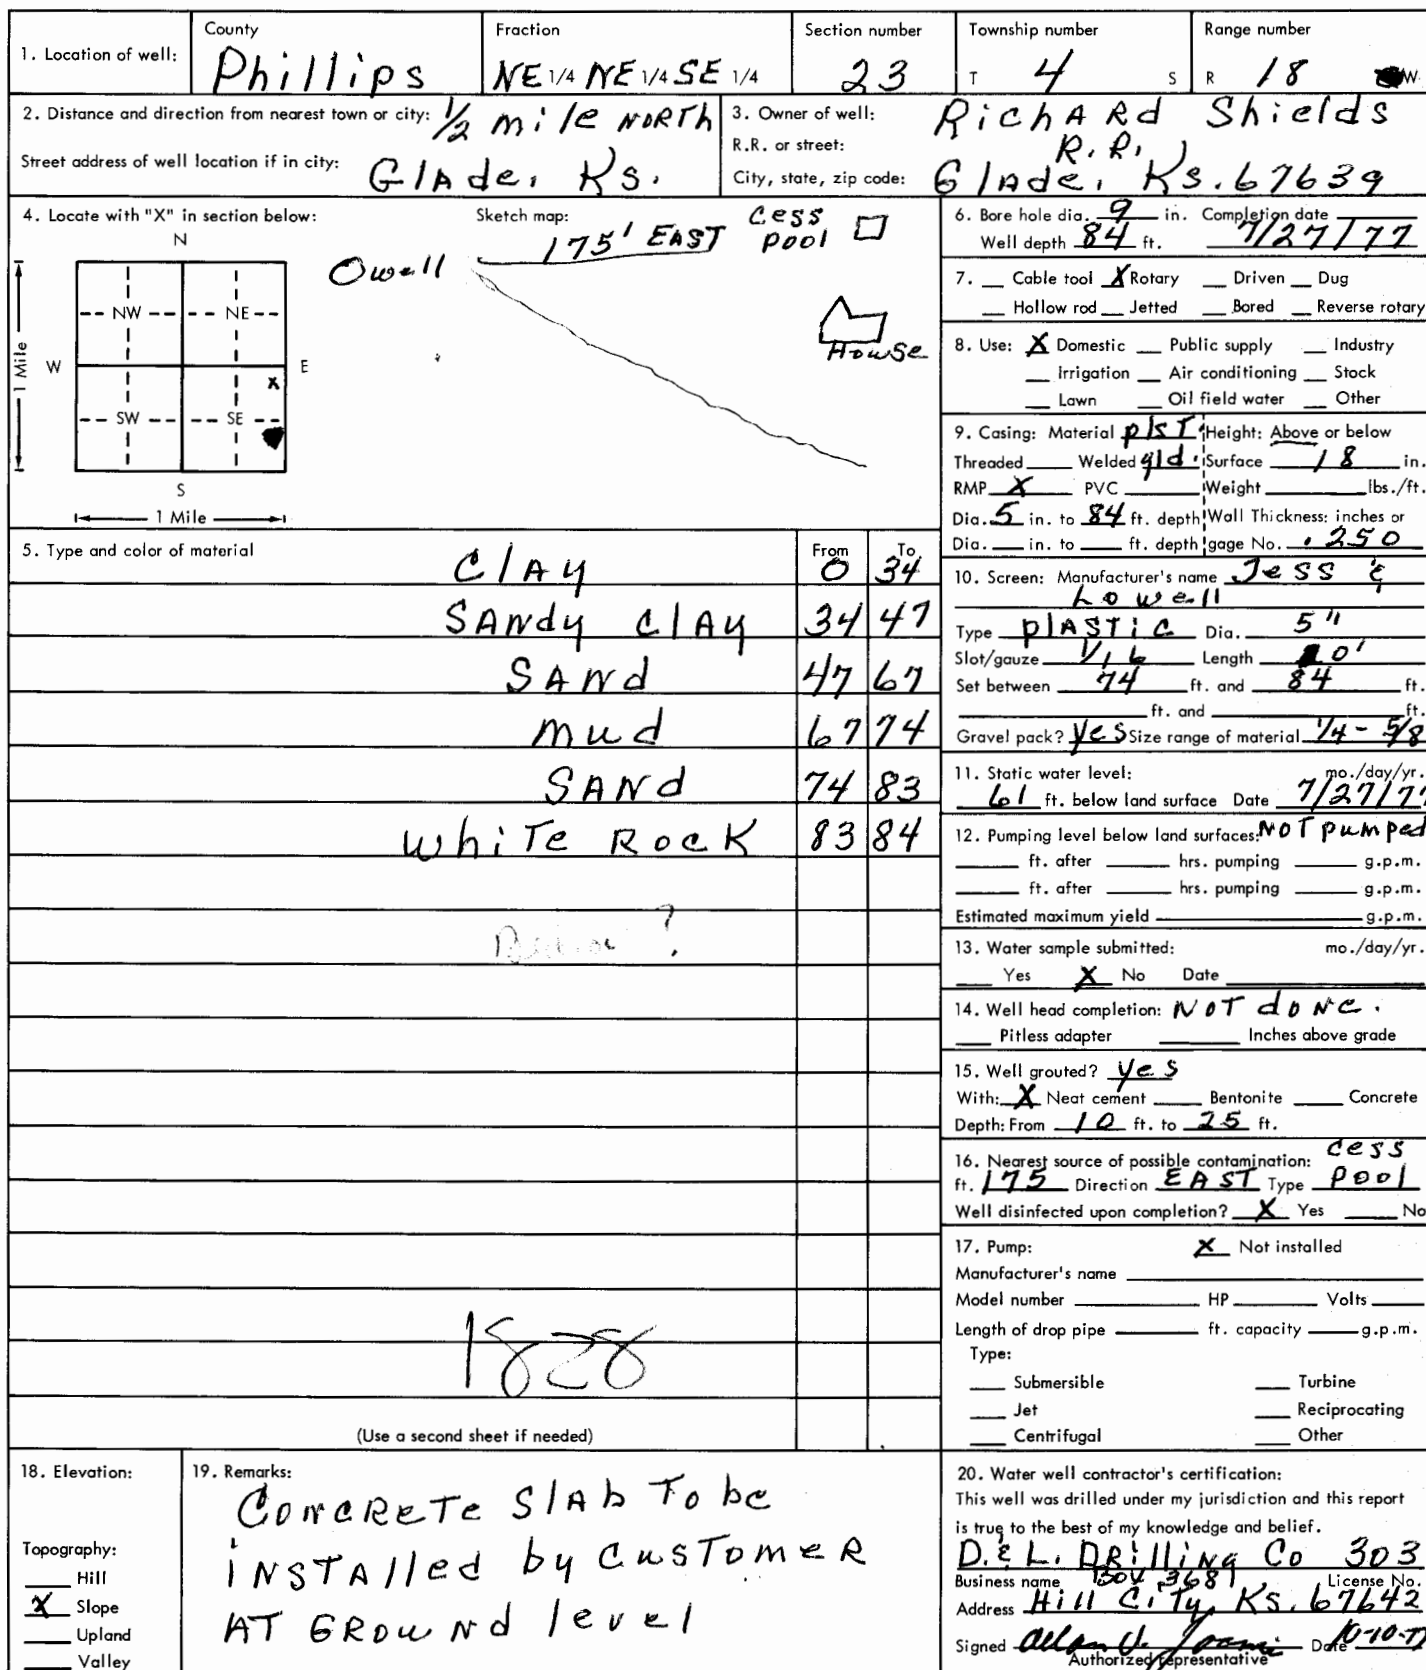 County Fraction Section number Township number Range number
1. Location of well: Phillips NE 1/4 NE 1/4 SE 1/4 23 T 4 S R 18 W
2. Distance and direction from nearest town or city: 1/2 mile NORTH
Street address of well location if in city: GlAde, Ks.
3. Owner of well: RichARd Shields
R.R. or street: R.R.
City, state, zip code: GlAde, Ks. 67639
4. Locate with "X" in section below: Sketch map:
N
175' EAST cess pool
Owell
House
NW NE
W E
X
SW SE
S
1 Mile
1 Mile
5. Type and color of material From To
ClAy 0 34
SANdy clAy 34 47
SANd 47 67
mud 67 74
SANd 74 83
whiTe RocK 83 84
?
1828
(Use a second sheet if needed)
6. Bore hole dia. 9 in. Completion date
Well depth 84 ft. 7/27/77
7. Cable tool X Rotary Driven Dug
Hollow rod Jetted Bored Reverse rotary
8. Use: X Domestic Public supply Industry
Irrigation Air conditioning Stock
Lawn Oil field water Other
9. Casing: Material plsT Height: Above or below
Threaded Welded gld. Surface 18 in.
RMP X PVC Weight lbs./ft.
Dia. 5 in. to 84 ft. depth Wall Thickness: inches or
Dia. in. to ft. depth gage No. .250
10. Screen: Manufacturer's name Jess &
Lowell
Type plASTiC Dia. 5"
Slot/gauze 1/16 Length 10'
Set between 74 ft. and 84 ft.
ft. and ft.
Gravel pack? yes Size range of material 1/4 - 5/8
11. Static water level: mo./day/yr.
61 ft. below land surface Date 7/27/77
12. Pumping level below land surfaces: NOT pumped
ft. after hrs. pumping g.p.m.
ft. after hrs. pumping g.p.m.
Estimated maximum yield g.p.m.
13. Water sample submitted: mo./day/yr.
Yes X No Date
14. Well head completion: NOT doNe.
Pitless adapter Inches above grade
15. Well grouted? yes
With: X Neat cement Bentonite Concrete
Depth: From 10 ft. to 25 ft.
16. Nearest source of possible contamination: cess
ft. 175 Direction EAST Type pool
Well disinfected upon completion? X Yes No
17. Pump: X Not installed
Manufacturer's name
Model number HP Volts
Length of drop pipe ft. capacity g.p.m.
Type:
Submersible Turbine
Jet Reciprocating
Centrifugal Other
18. Elevation:
Topography:
Hill
X Slope
Upland
Valley
19. Remarks:
CoNcReTe SlAb To be
iNSTAlled by CusTomeR
AT GRouNd level
20. Water well contractor's certification:
This well was drilled under my jurisdiction and this report
is true to the best of my knowledge and belief.
D. & L. DRilliNg Co 303
Business name License No.
Address Hill CiTy, Ks. 67642
Signed Date 10-10-77
Authorized representative